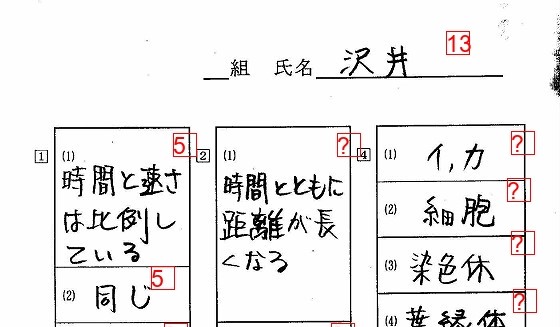 組 氏名 沢井 13
1 (1) 時間と速さは比例している 5
(2) 同じ 5
2 (1) 時間とともに距離が長くなる ?
4 (1) イ,カ ?
(2) 細胞 ?
(3) 染色休 ?
(4) 葉緑体 ?